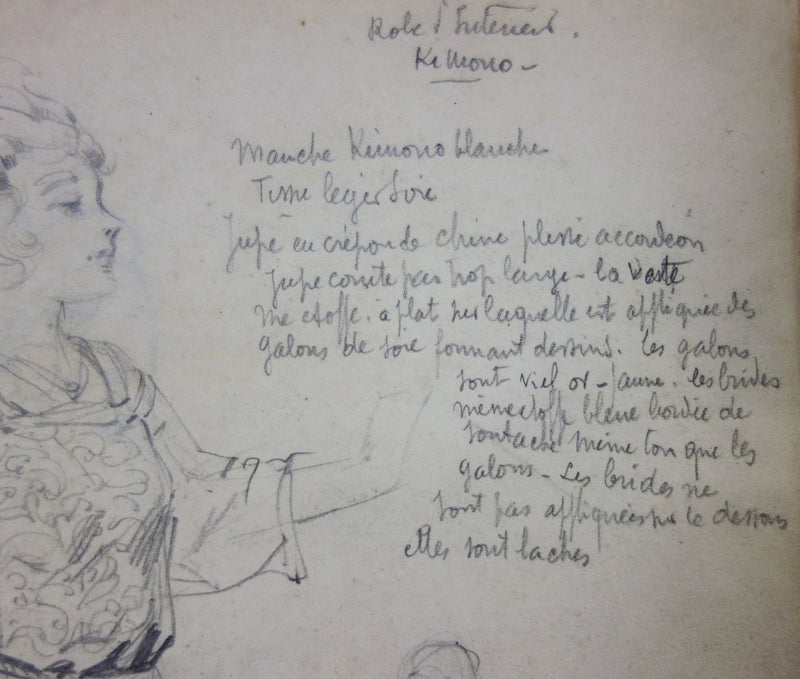 Robe d'Interieur.
Kimono -
Manche Kimono blanche
Tissu leger Soie
Jupe en crépon de chine plissé accordéon
Jupe courte pas trop large - la veste
me etoffe. à plat sur laquelle est appliquée des
galons de soie formant dessins. les galons
sont vieil or - jaune. les brides
même etoffe bleue bordée de
soutache même ton que les
galons - Les brides ne
sont pas appliquées sur le dessous
elles sont laches